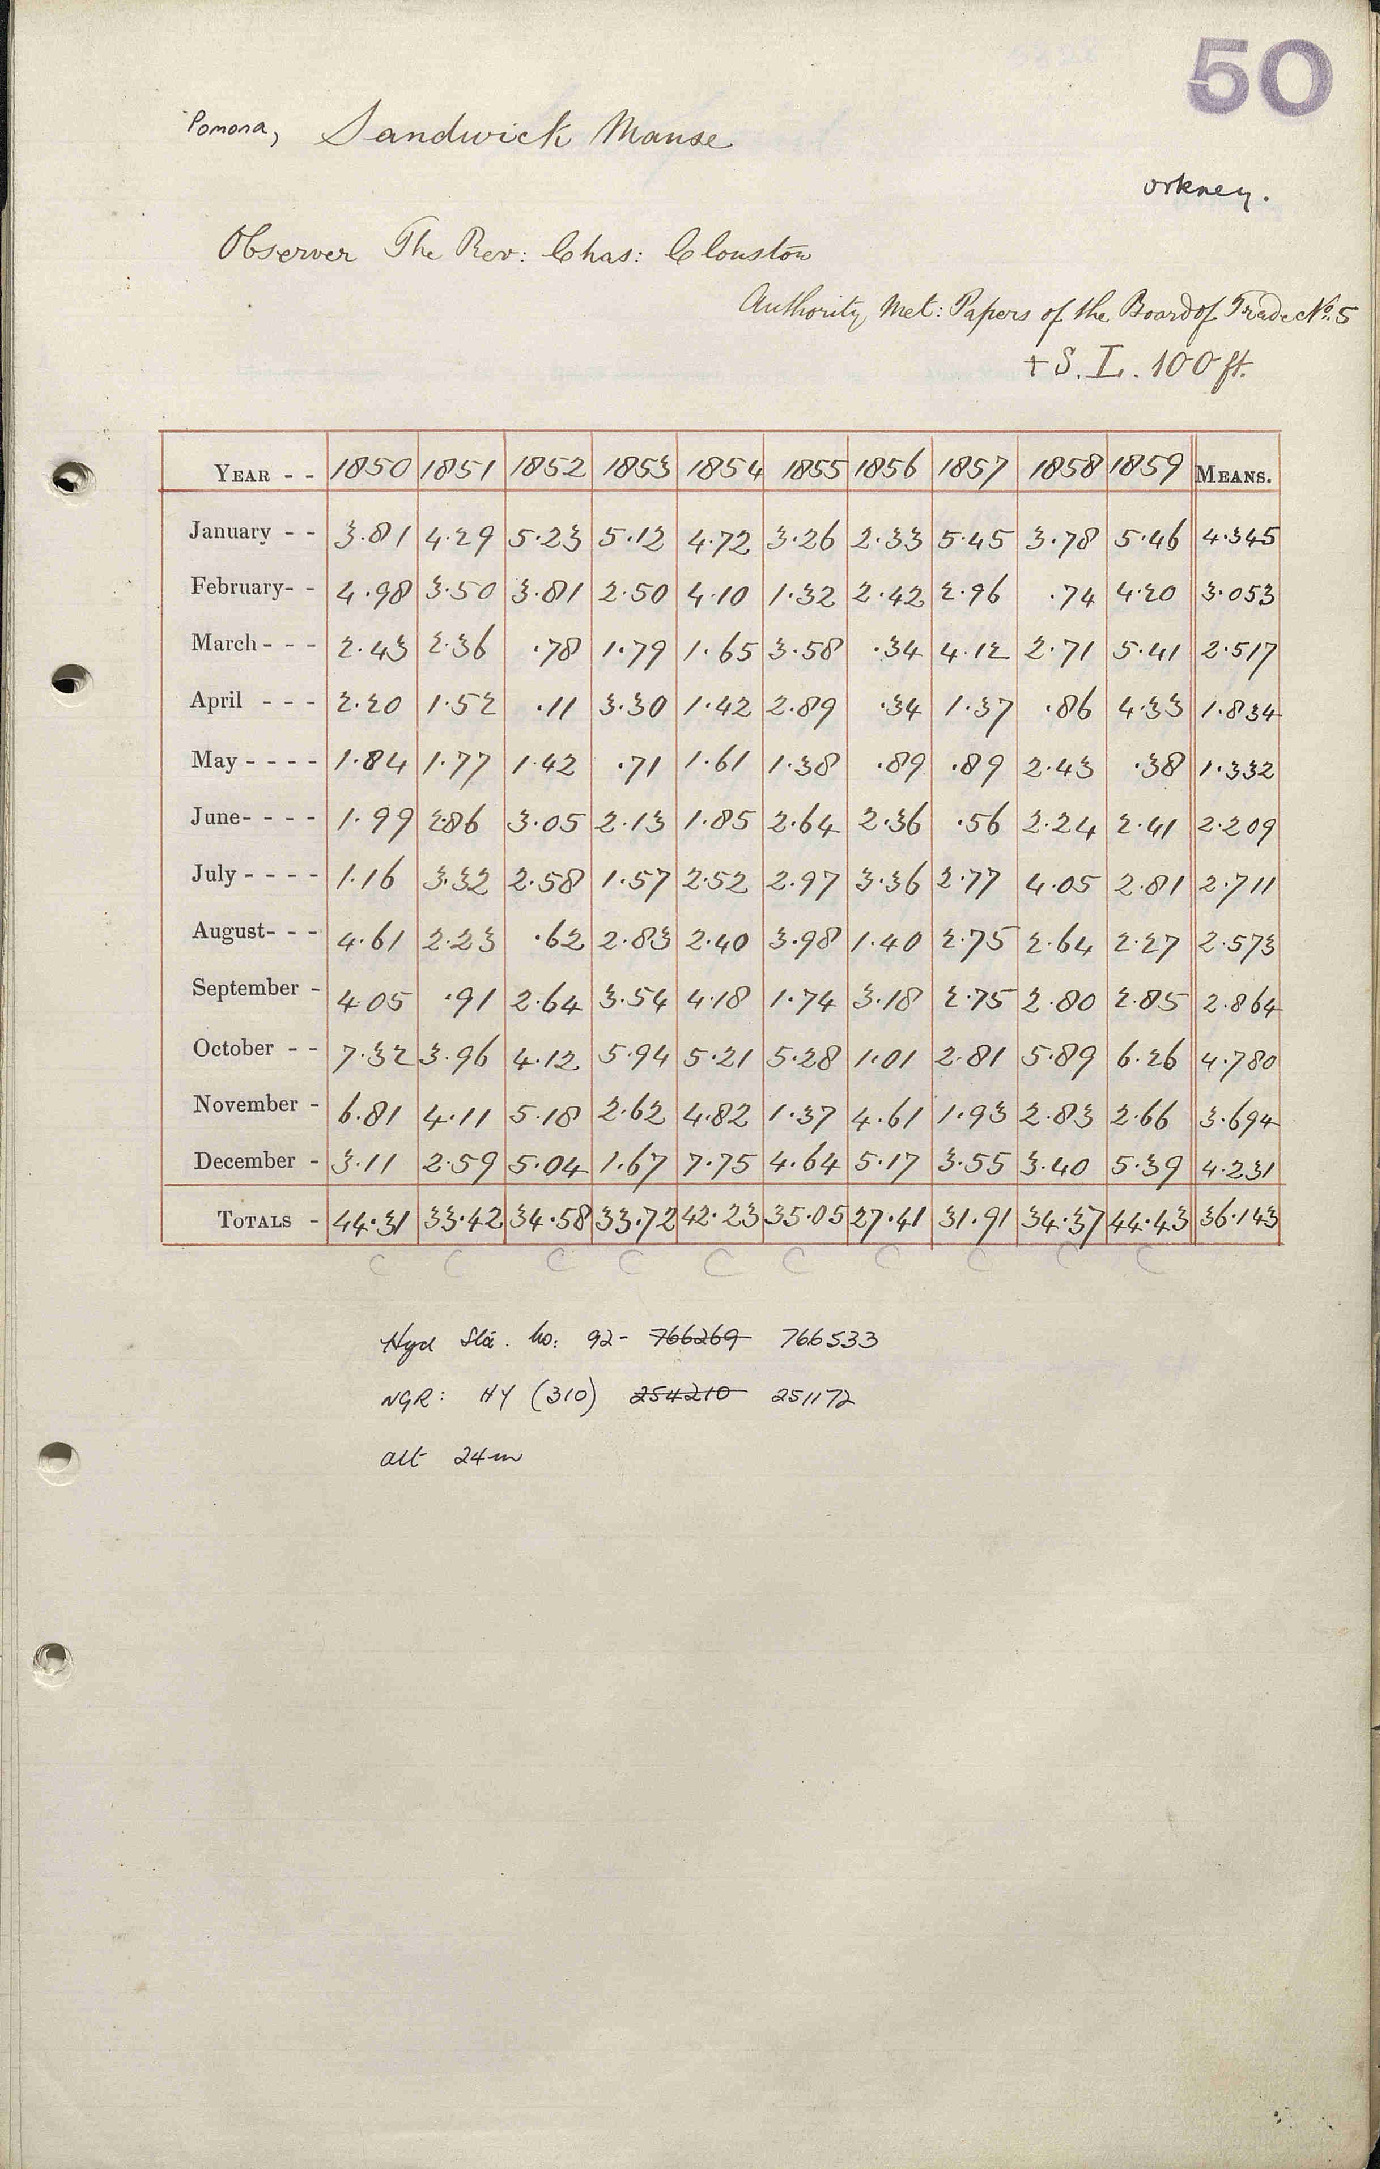 50
Pomona, Sandwick Manse
Orkney.
Observer The Rev: Chas: Clouston
Authority Met: Papers of the Board of Trade No. 5
+ S. L. 100 ft.
YEAR - - 1850 1851 1852 1853 1854 1855 1856 1857 1858 1859 MEANS.
January - - 3.81 4.29 5.23 5.12 4.72 3.26 2.33 5.45 3.78 5.46 4.345
February- - 4.98 3.50 3.81 2.50 4.10 1.32 2.42 2.96 .74 4.20 3.053
March - - - 2.43 2.36 .78 1.79 1.65 3.58 .34 4.12 2.71 5.41 2.517
April - - - 2.20 1.52 .11 3.30 1.42 2.89 .34 1.37 .86 4.33 1.834
May - - - - 1.84 1.77 1.42 .71 1.61 1.38 .89 .89 2.43 .38 1.332
June- - - - 1.99 2.86 3.05 2.13 1.85 2.64 2.36 .56 2.24 2.41 2.209
July - - - - 1.16 3.32 2.58 1.57 2.52 2.97 3.36 2.77 4.05 2.81 2.711
August- - - 4.61 2.23 .62 2.83 2.40 3.98 1.40 2.75 2.64 2.27 2.573
September - 4.05 .91 2.64 3.54 4.18 1.74 3.18 2.75 2.80 2.85 2.864
October - - 7.32 3.96 4.12 5.94 5.21 5.28 1.01 2.81 5.89 6.26 4.780
November - 6.81 4.11 5.18 2.62 4.82 1.37 4.61 1.93 2.83 2.66 3.694
December - 3.11 2.59 5.04 1.67 7.75 4.64 5.17 3.55 3.40 5.39 4.231
TOTALS - 44.31 33.42 34.58 33.72 42.23 35.05 27.41 31.91 34.37 44.43 36.143
C C C C C C C C C C
Hyd Sta. No: 92- 766269 766533
NGR: HY (310) 254210 251172
alt 24m